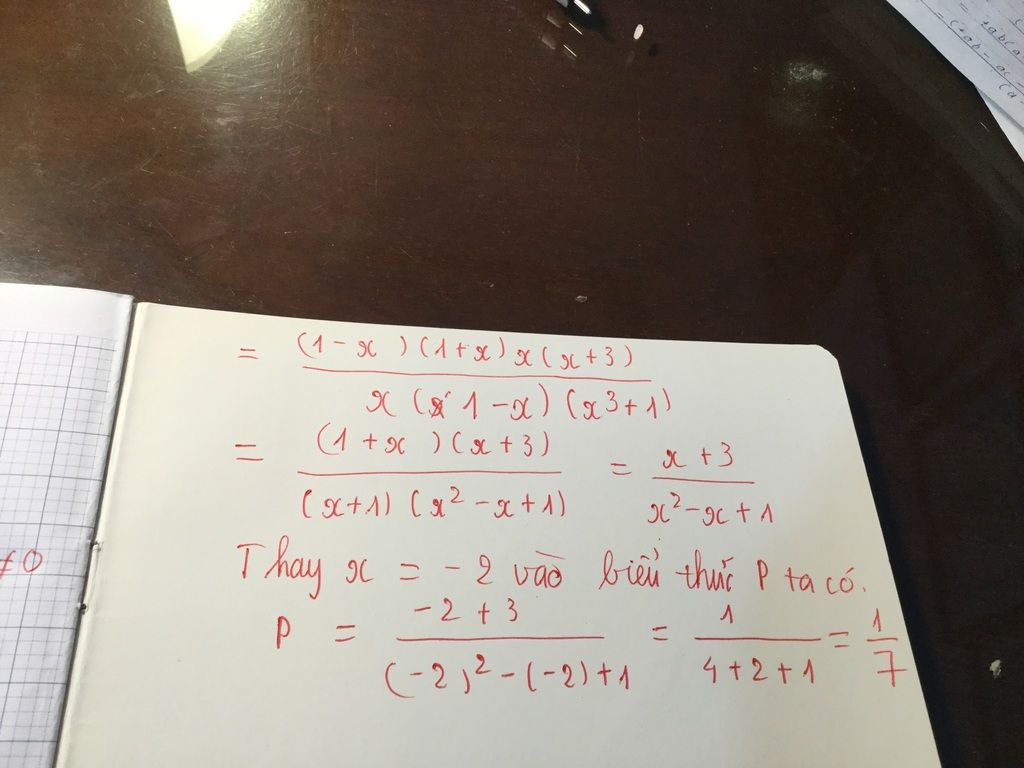 = \frac{(1-x)(1+x)x(x+3)}{x(1-x)(x^3+1)}
= \frac{(1+x)(x+3)}{(x+1)(x^2-x+1)} = \frac{x+3}{x^2-x+1}
Thay x = -2 vào biểu thức P ta có.
P = \frac{-2+3}{(-2)^2-(-2)+1} = \frac{1}{4+2+1} = \frac{1}{7}
≠0